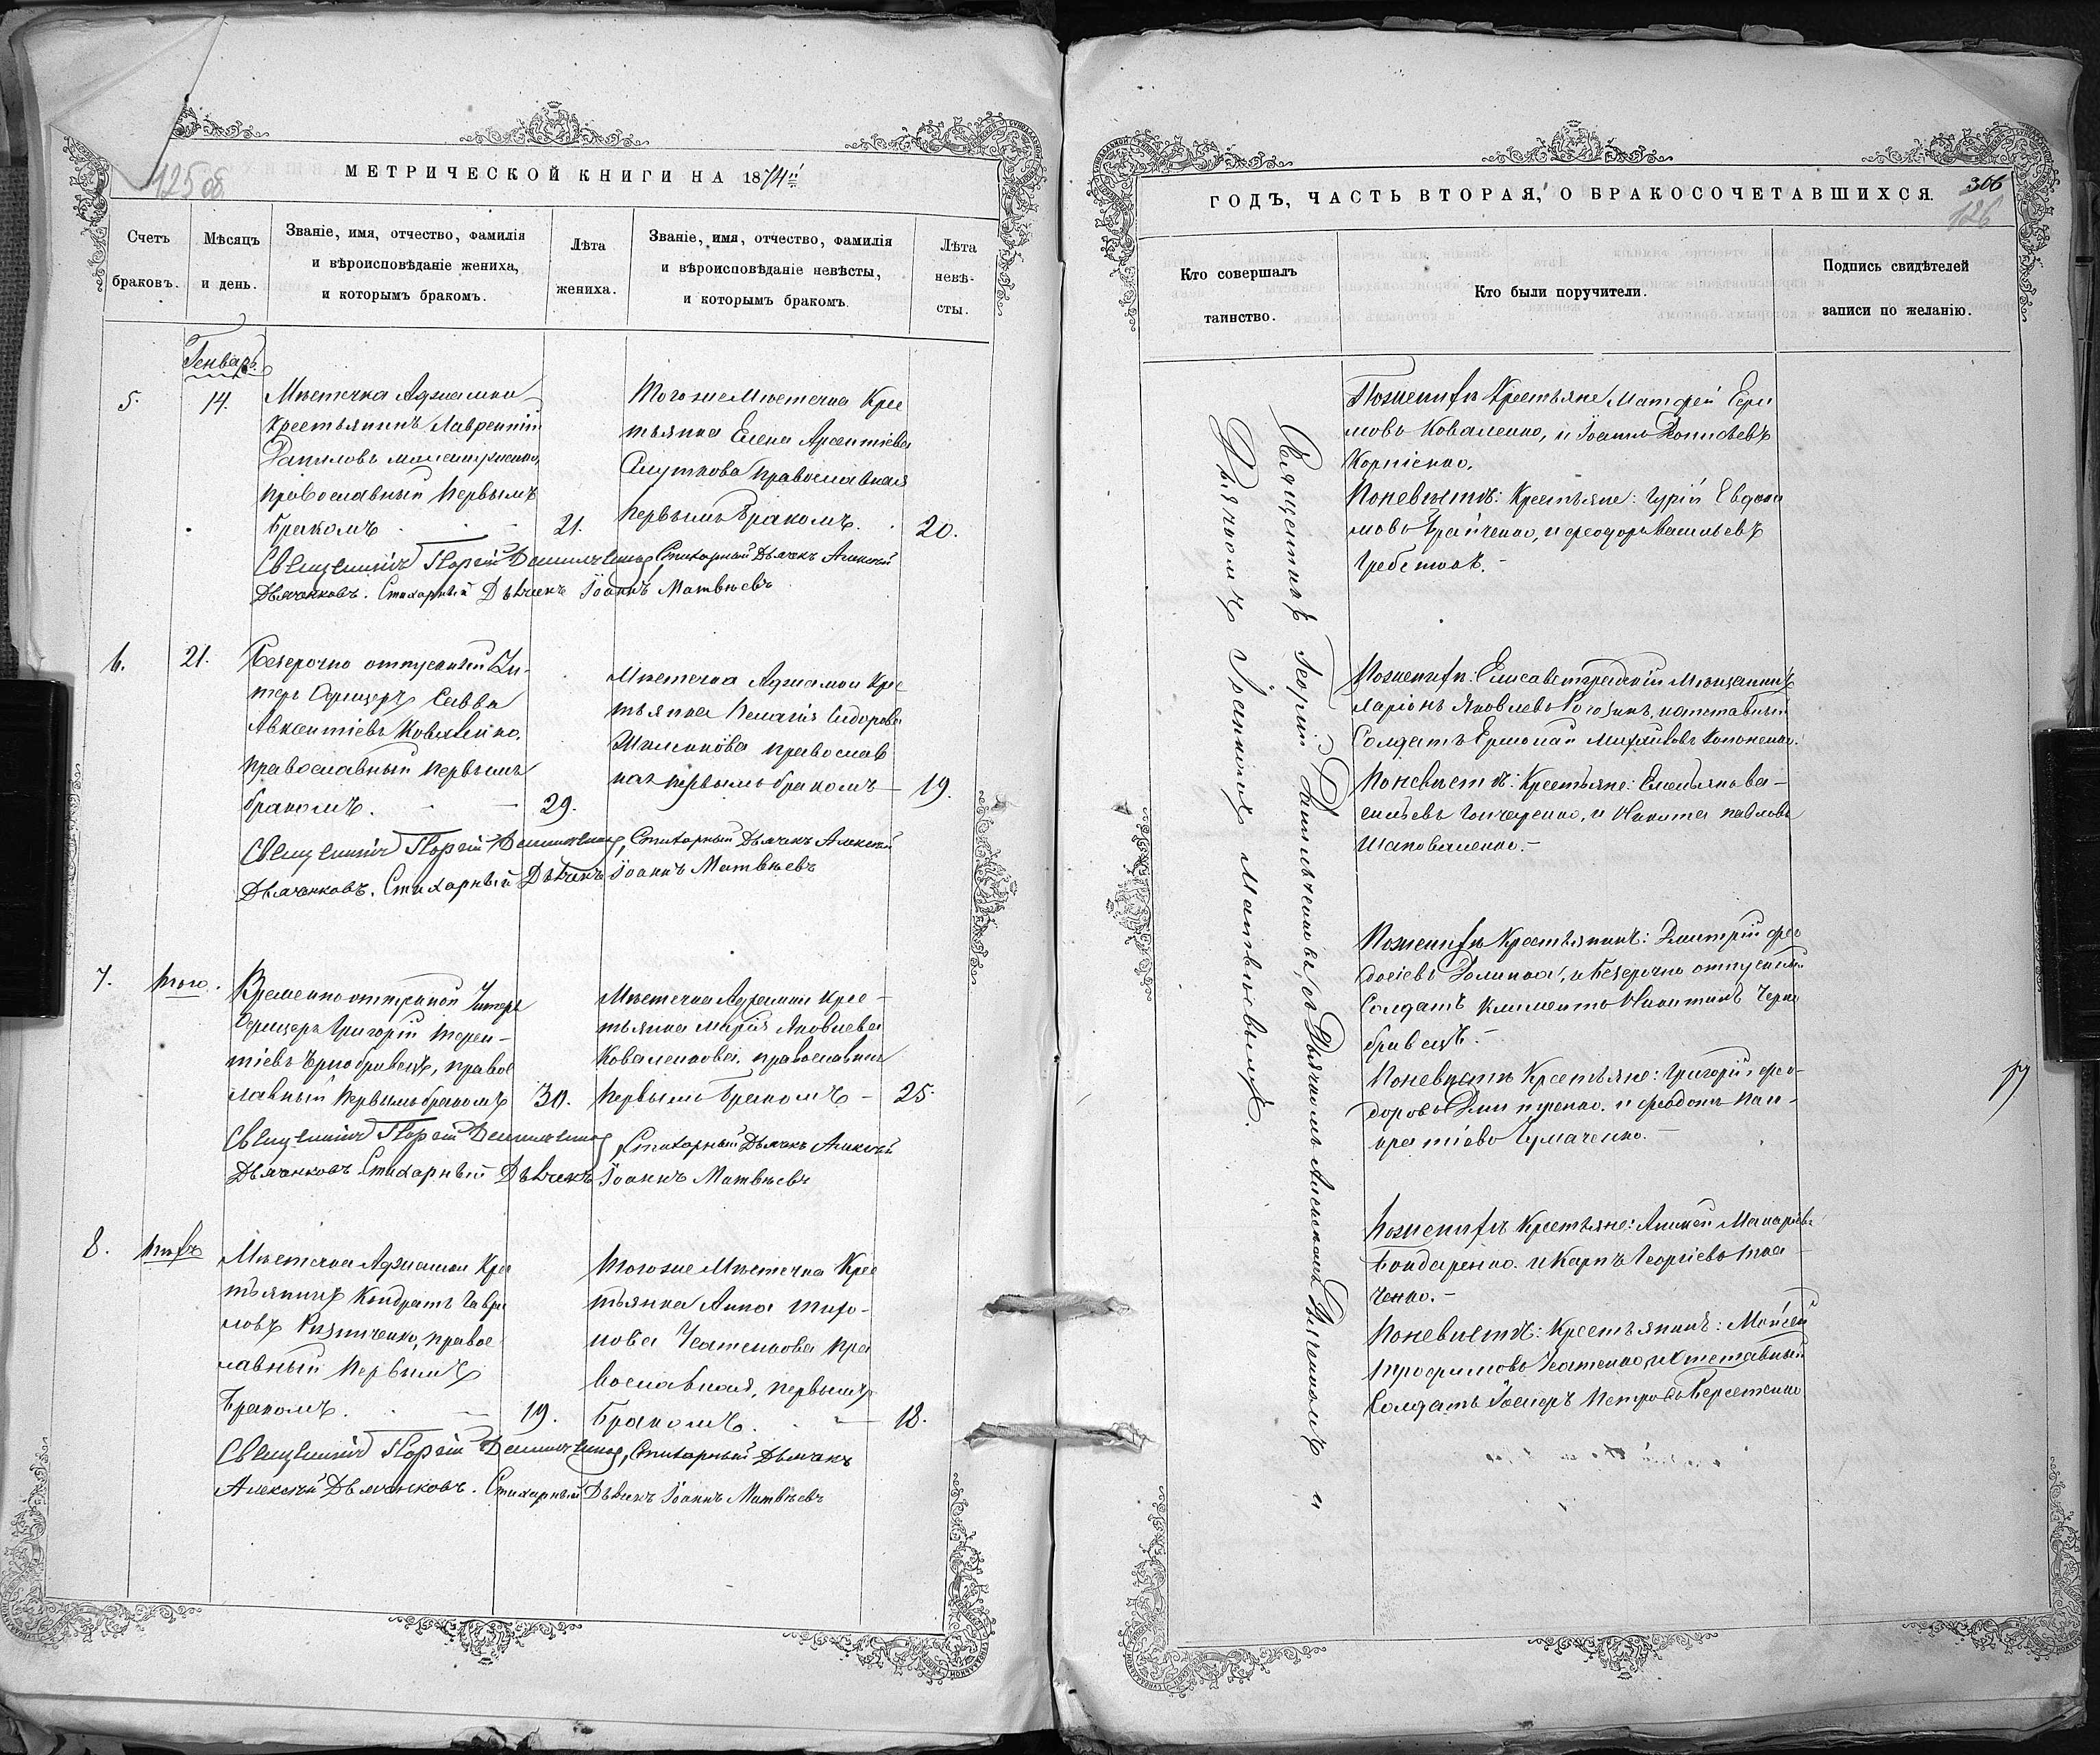 125 об
МЕТРИЧЕСКОЙ КНИГИ НА 1874й
Счетъ
браковъ.
Мѣсяцъ
и день.
Званіе, имя, отчество, фамилія
и вѣроисповѣданіе жениха,
и которымъ бракомъ.
Лѣта
жениха.
Званіе, имя, отчество, фамилія
и вѣроисповѣданіе невѣсты,
и которымъ бракомъ.
Лѣта
невѣ-
сты.
Генварь
5.
14.
Мѣстечка Аджамки
крестьянинъ Лаврентій
Даниловъ
православный первымъ
бракомъ
21.
Тогоже Мѣстечка Кре
тьянка Елена Арсентіева
Слуткова православная
первымъ бракомъ.
20.
Священникъ Георгій Данильченко, Стихарный Дьячекъ Алексѣй
Дьячковъ. Стихарный Дьячекъ Іоаннъ Матвѣевъ
6.
21.
Безсрочно отпускный Ун-
теръ Офицеръ Савва
Авксентіевъ Коваленко.
православный первымъ
бракомъ.
29.
Мѣстечка Аджамки Кре
тьянка Пелагія Сидорова
православ
ная первымъ бракомъ
19.
Священникъ Георгій Данильченко, Стихарный Дьячекъ Алексѣй
Дьячковъ. Стихарный Дьячекъ Іоаннъ Матвѣевъ
7.
того.
Временно отпускной Унтеръ
Офицеръ Григорій Терен-
тіевъ Чернобривецъ, право
славный первымъ бракомъ
30.
Мѣстечка Аджамки Крес-
тьянка Марія Яковлева
Коваленкова, православная
первымъ бракомъ
25.
Священникъ Георгій Данильченко, Стихарный Дьячекъ Алексѣй
Дьячковъ Стихарный Дьячекъ Іоаннъ Матвѣевъ
8.
тогожъ
Мѣстечка Аджамки Крес
тьянинъ Кондратъ Гаври
ловъ Ризниченко, правос
лавный первымъ
бракомъ.
19.
Тогоже Мѣстечка Крес
тьянка Анна Тимо-
пра
вославная, первымъ
бракомъ.
18.
Священникъ Георгій Данильченко, Стихарный Дьячекъ
Алексѣй Дьячковъ. Стихарный Дьячекъ Іоаннъ Матвѣевъ
306
126
ГОДЪ, ЧАСТЬ ВТОРАЯ, О БРАКОСОЧЕТАВШИХСЯ.
Кто совершалъ
таинство.
Кто были поручители.
Подпись свидѣтелей
записи по желанію.
Священникъ Георгій Данильченко, съ Дьячкомъ Алексѣемъ Дьячковымъ и
Дьячкомъ Іоанномъ Матвѣевымъ.
По женихѣ Крестьяне Матфей Ефи
мовъ Коваленко, и Іоаннъ Денисьевъ
Корніенко.
По невѣстѣ: Крестьяне: Гурій Евдоки
мовъ и Феодоръ Васильевъ
По женихѣ. Елисаветградскій Мѣщанинъ
Иларіонъ Яковлевъ Рогозинъ, и отставный
Солдатъ Ермолай Михайловъ Кононенко.
По невѣстѣ: Крестьяне: Емельянъ Ва-
сильевъ Гончаренко, и Никита Павловъ
Шаповаленко.
По женихѣ Крестьянинъ: Дмитрій Фео
досіевъ Долинка, и безсрочно отпускный
Солдатъ Климентъ Никитинъ Черно
бривецъ.
По невѣстѣ Крестьяне: Григорій Фео-
доровъ и Феодотъ Пан-
кратіевъ Чумаченко.
По женихѣ Крестьяне: Алексѣй Макаріевъ
Бондаренко. и Карпъ Георгіевъ Тка
ченко.
По невѣстѣ: Крестьянинъ: Мойсей
Трофимовъ и отставный
Солдатъ Іосифъ Петровъ